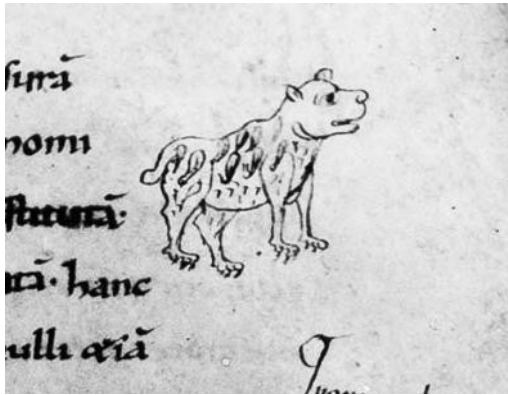 surā
nomi
statutā·
tā· hanc
ulli &iā